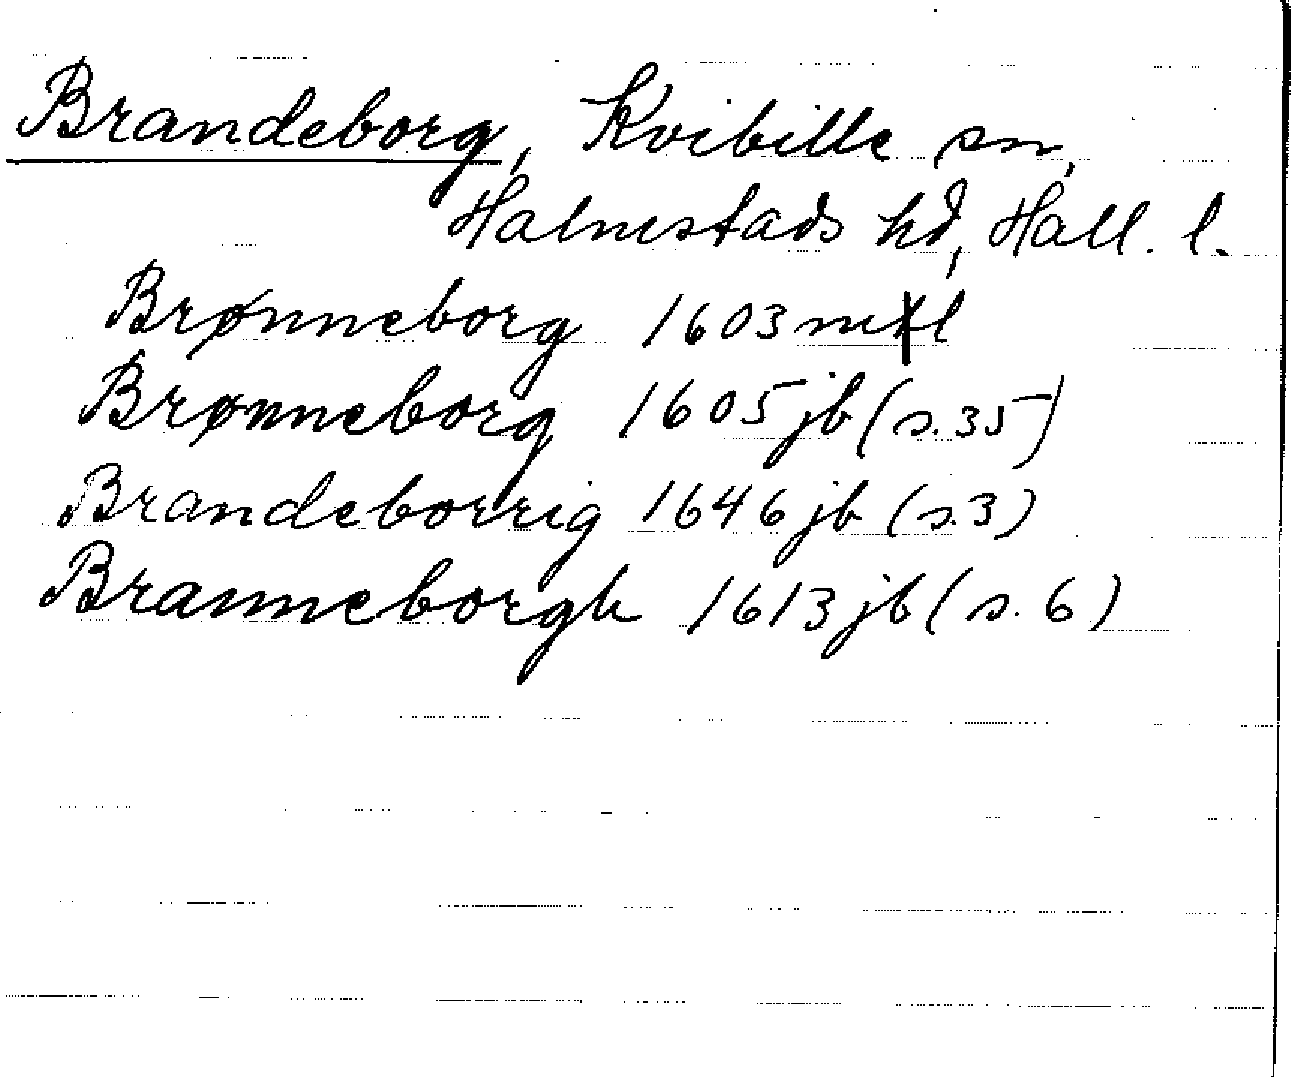 Brandeborg, Kvibille sn,
Halmstads hd, Hall. l.
Brønneborg 1603
Brønneborg 1605 jb (s. 35)
Brandeborrig 1646 jb (s. 3)
Branneborgh 1613 jb (s. 6)